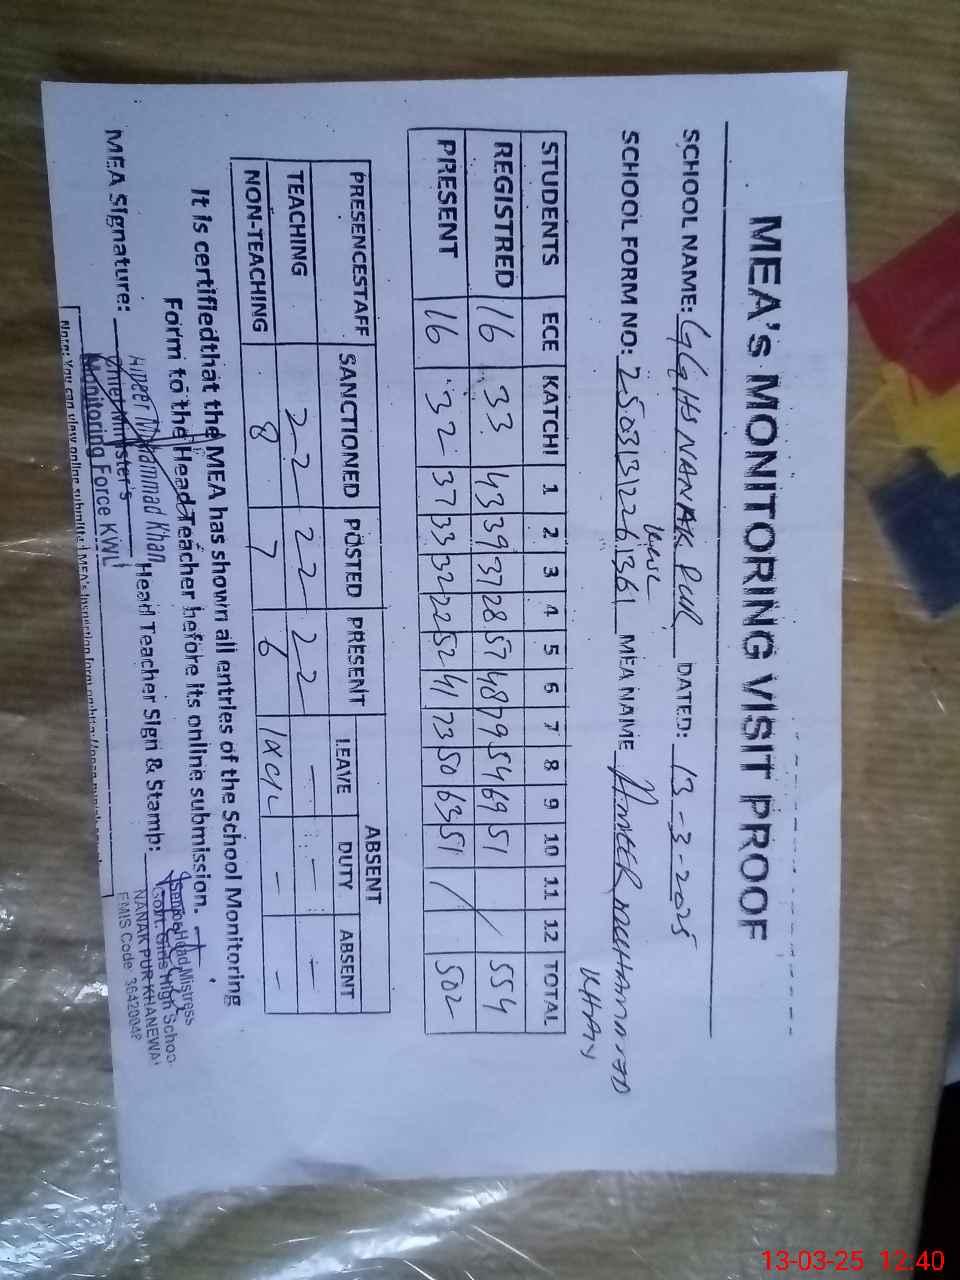 MEA's MONITORING VISIT PROOF
SCHOOL NAME: GGHS NANAK PUR DATED: 13-3-2025
KWL
SCHOOL FORM NO: 25031312261361 MEA NAME AMEER MUHAMMAD
KHAN
STUDENTS ECE KATCHI 1 2 3 4 5 6 7 8 9 10 11 12 TOTAL
REGISTRED 16 33 43 39 37 28 57 48 79 54 69 51 / 554
PRESENT 16 32 37 33 32 22 52 41 73 50 63 51 / 502
ABSENT
PRESENCESTAFF SANCTIONED POSTED PRESENT LEAVE DUTY ABSENT
TEACHING 22 22 22 - - -
NON-TEACHING 8 7 6 1XCL - -
It is certifiedthat the MEA has shown all entries of the School Monitoring
Form to the Head Teacher before its online submission.
Ameer Muhammad Khan
MEA Signature: Head Teacher Sign & Stamp:
Chief Minister's
Monitoring Force KWL
Senior Head Mistress
Govt. Girls High School
NANAK PUR KHANEWAL
EMIS Code
Note: You can view online submitted MEA's inspection form on
13-03-25 12:40